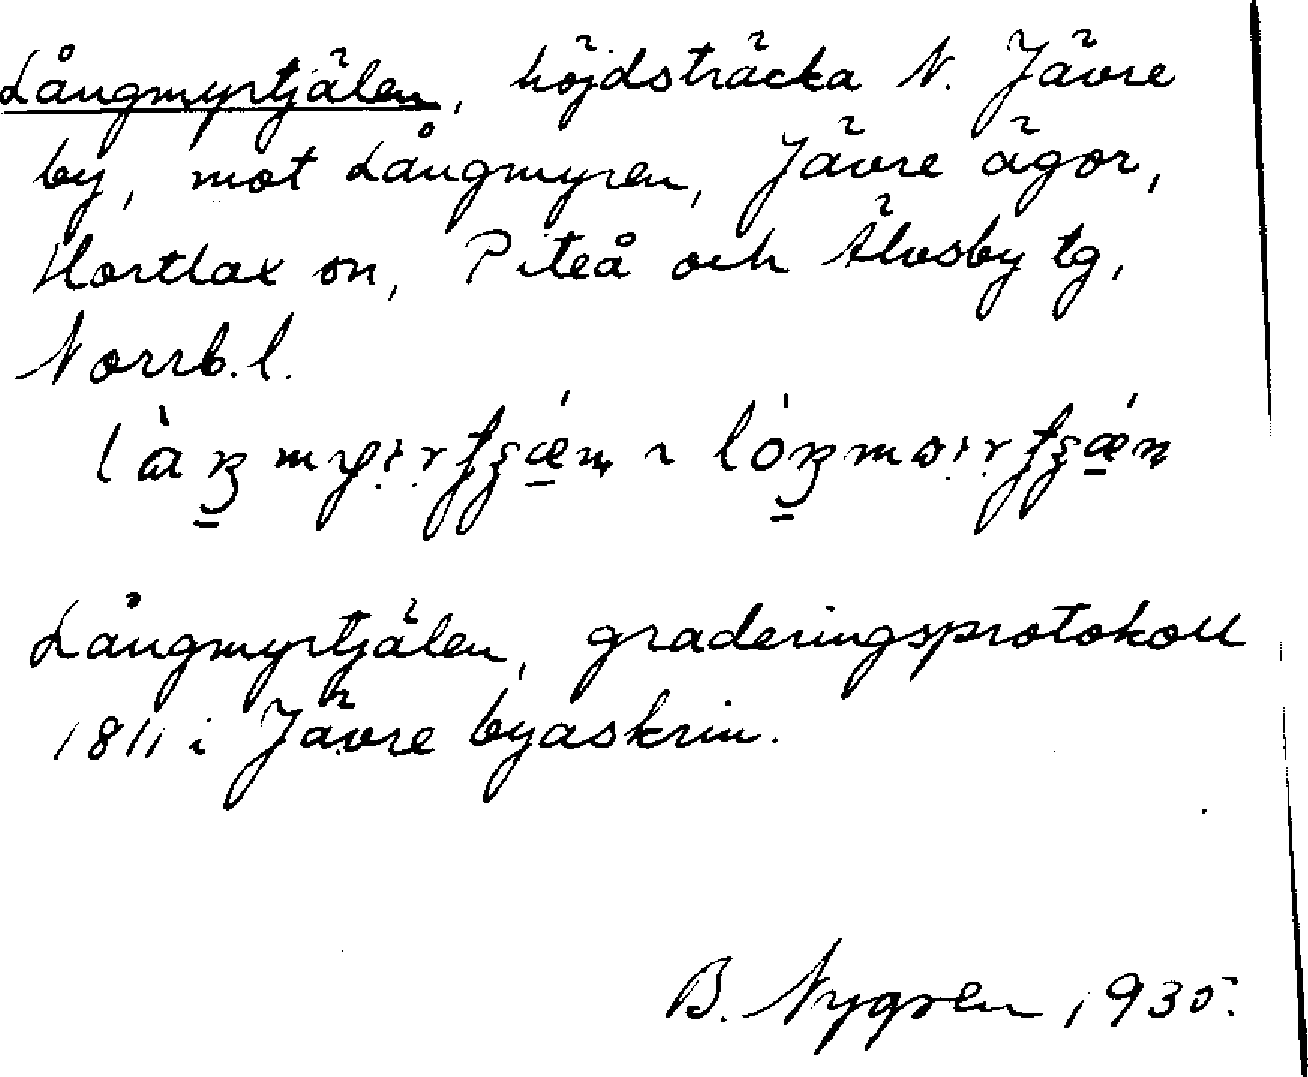 Långmyrtjälen, höjdsträcka N. Jävre
by, mot Långmyren, Jävre ägor,
Hortlax sn, Piteå och Älvsby tg,
Norrb. l.
Långmyrtjälen, graderingsprotokoll
1811 i Jävre byaskrin.
B. Nygren 1935.